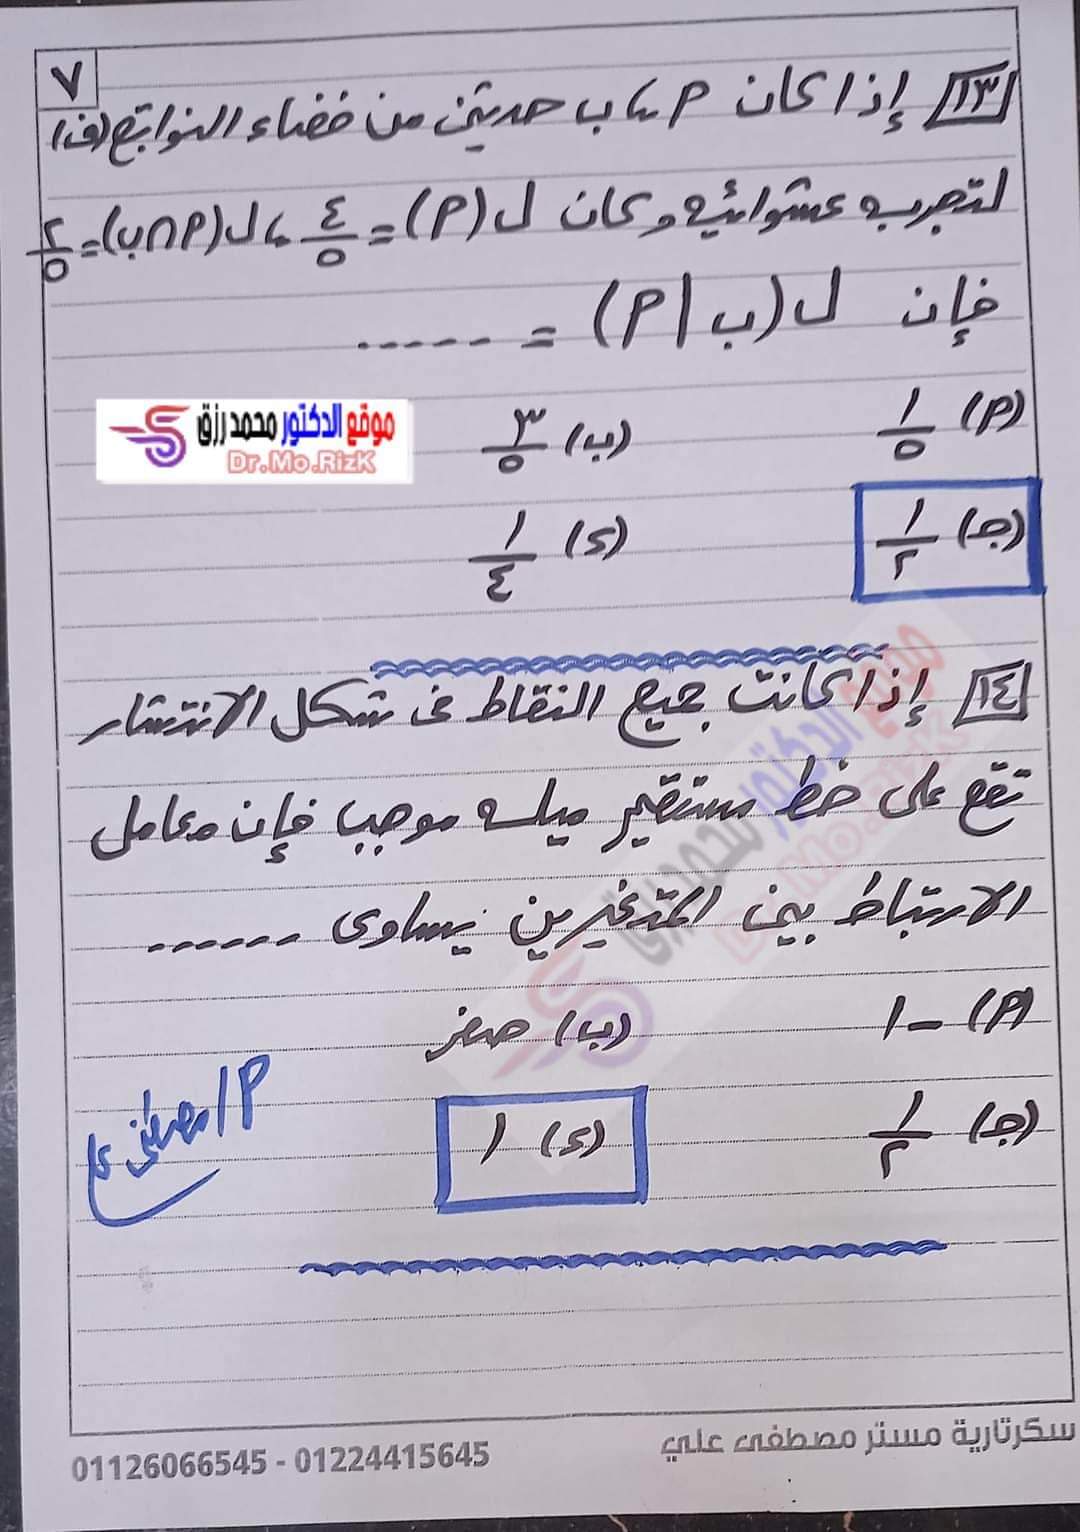 ٧
١٣ إذا كان P ، ب حدثين من فضاء النواتج (ف)
لتجربه عشوائيه وكان ل (P) = ٤/٥ ، ل (P ∩ ب) = ٢/٥
فإن ل (ب | P) = -----
(P) ١/٥ (ب) ٣/٥
موقع الدكتور محمد رزق
Dr.Mo.RizK
(جـ) ١/٢ (د) ١/٤
١٤ إذا كانت جميع النقاط فى شكل الانتشار
تقع على خط مستقيم ميله موجب فإن معامل
الارتباط بين المتغيرين يساوى ------
(P) -١ (ب) صفر
(جـ) ١/٢ (د) ١
P/ مصطفى على
سكرتارية مستر مصطفى علي
01126066545 - 01224415645